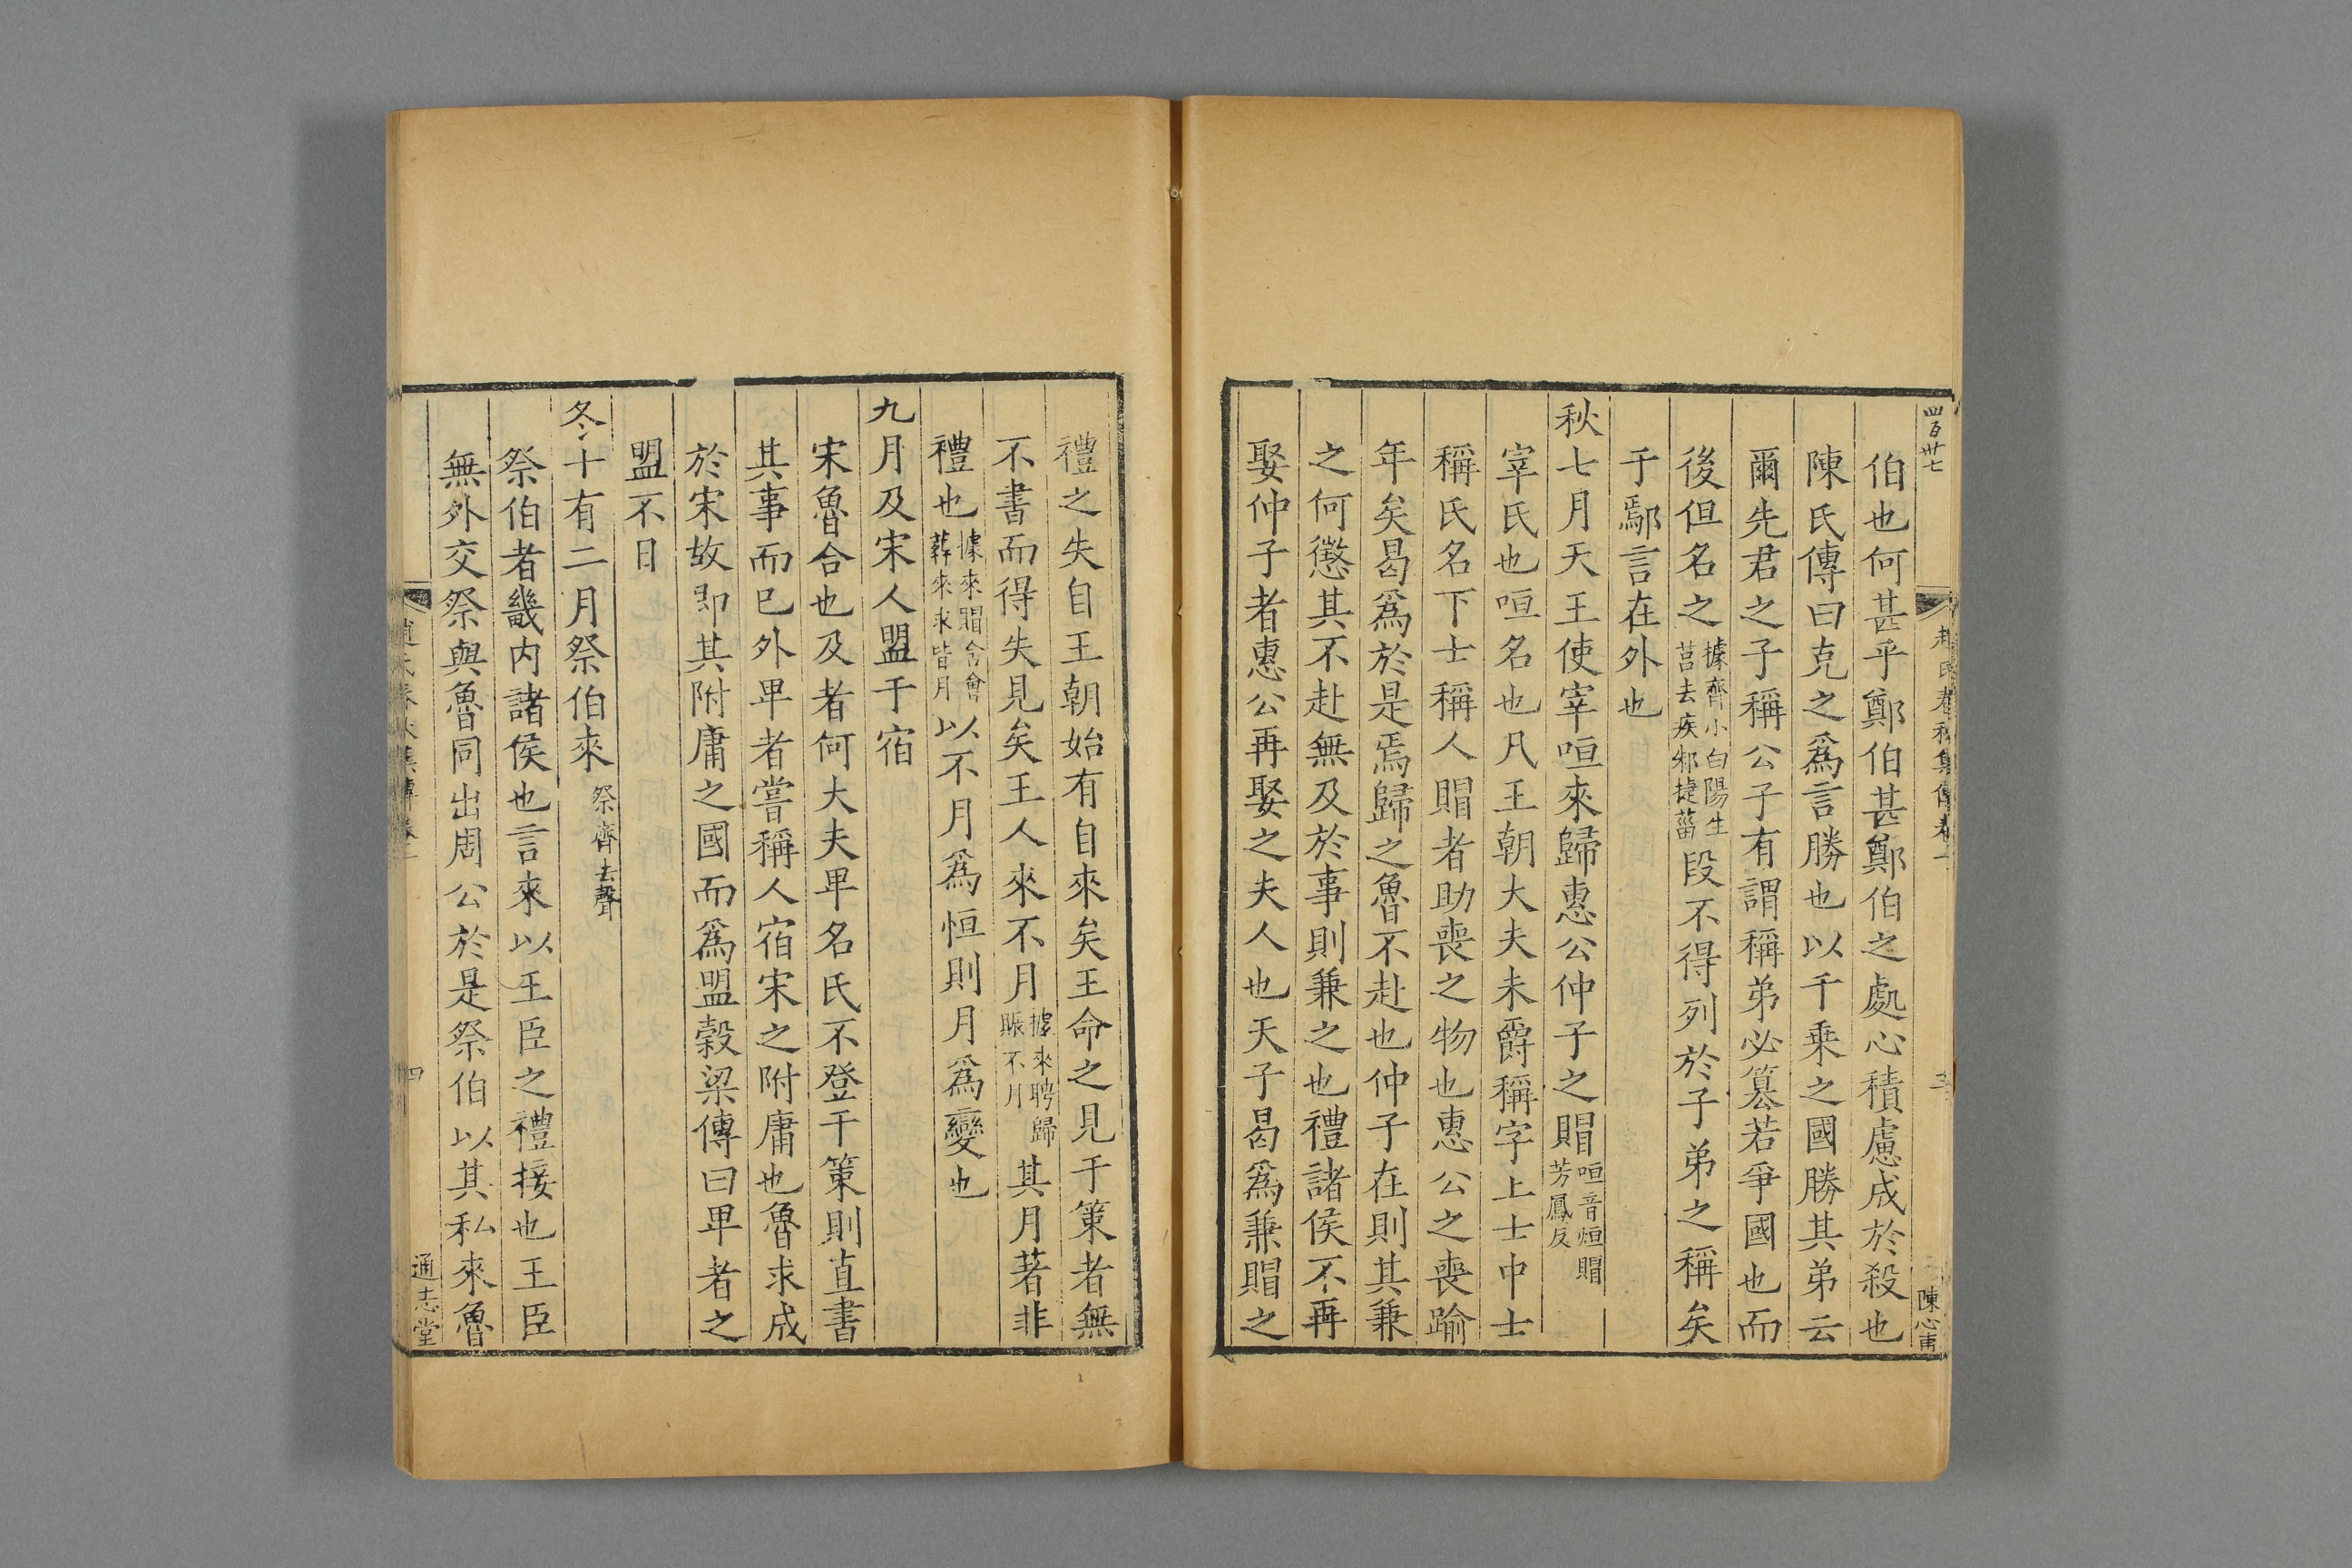 四百卅七
趙氏春秋集傳卷一
三
陳心甫
伯也何甚乎鄭伯甚鄭伯之處心積慮成於殺也
陳氏傳曰克之爲言勝也以千乗之國勝其弟云
爾先君之子稱公子有謂稱弟必簒若爭國也而
後但名之據齊小白陽生莒去疾邾捷菑段不得列於子弟之稱矣
于鄢言在外也
秋七月天王使宰咺來歸惠公仲子之賵咺音烜賵芳鳳反
宰氏也咺名也凡王朝大夫未爵稱字上士中士
稱氏名下士稱人賵者助喪之物也惠公之喪踰
年矣曷爲於是焉歸之魯不赴也仲子在則其兼
之何懲其不赴無及於事則兼之也禮諸侯不再
娶仲子者惠公再娶之夫人也天子曷爲兼賵之
禮之失自王朝始有自來矣王命之見于策者無
不書而得失見矣王人來不月據來聘歸賑不月其月著非
禮也據來賵含會葬來求皆月以不月爲恒則月爲變也
九月及宋人盟于宿
宋魯合也及者何大夫卑名氏不登于策則直書
其事而已外卑者嘗稱人宿宋之附庸也魯求成
於宋故即其附庸之國而爲盟榖梁傳曰卑者之
盟不日
冬十有二月祭伯來祭齊去聲
祭伯者畿内諸侯也言來以王臣之禮接也王臣
無外交祭與魯同出周公於是祭伯以其私來魯
趙氏春秋集傳卷一
四
通志堂